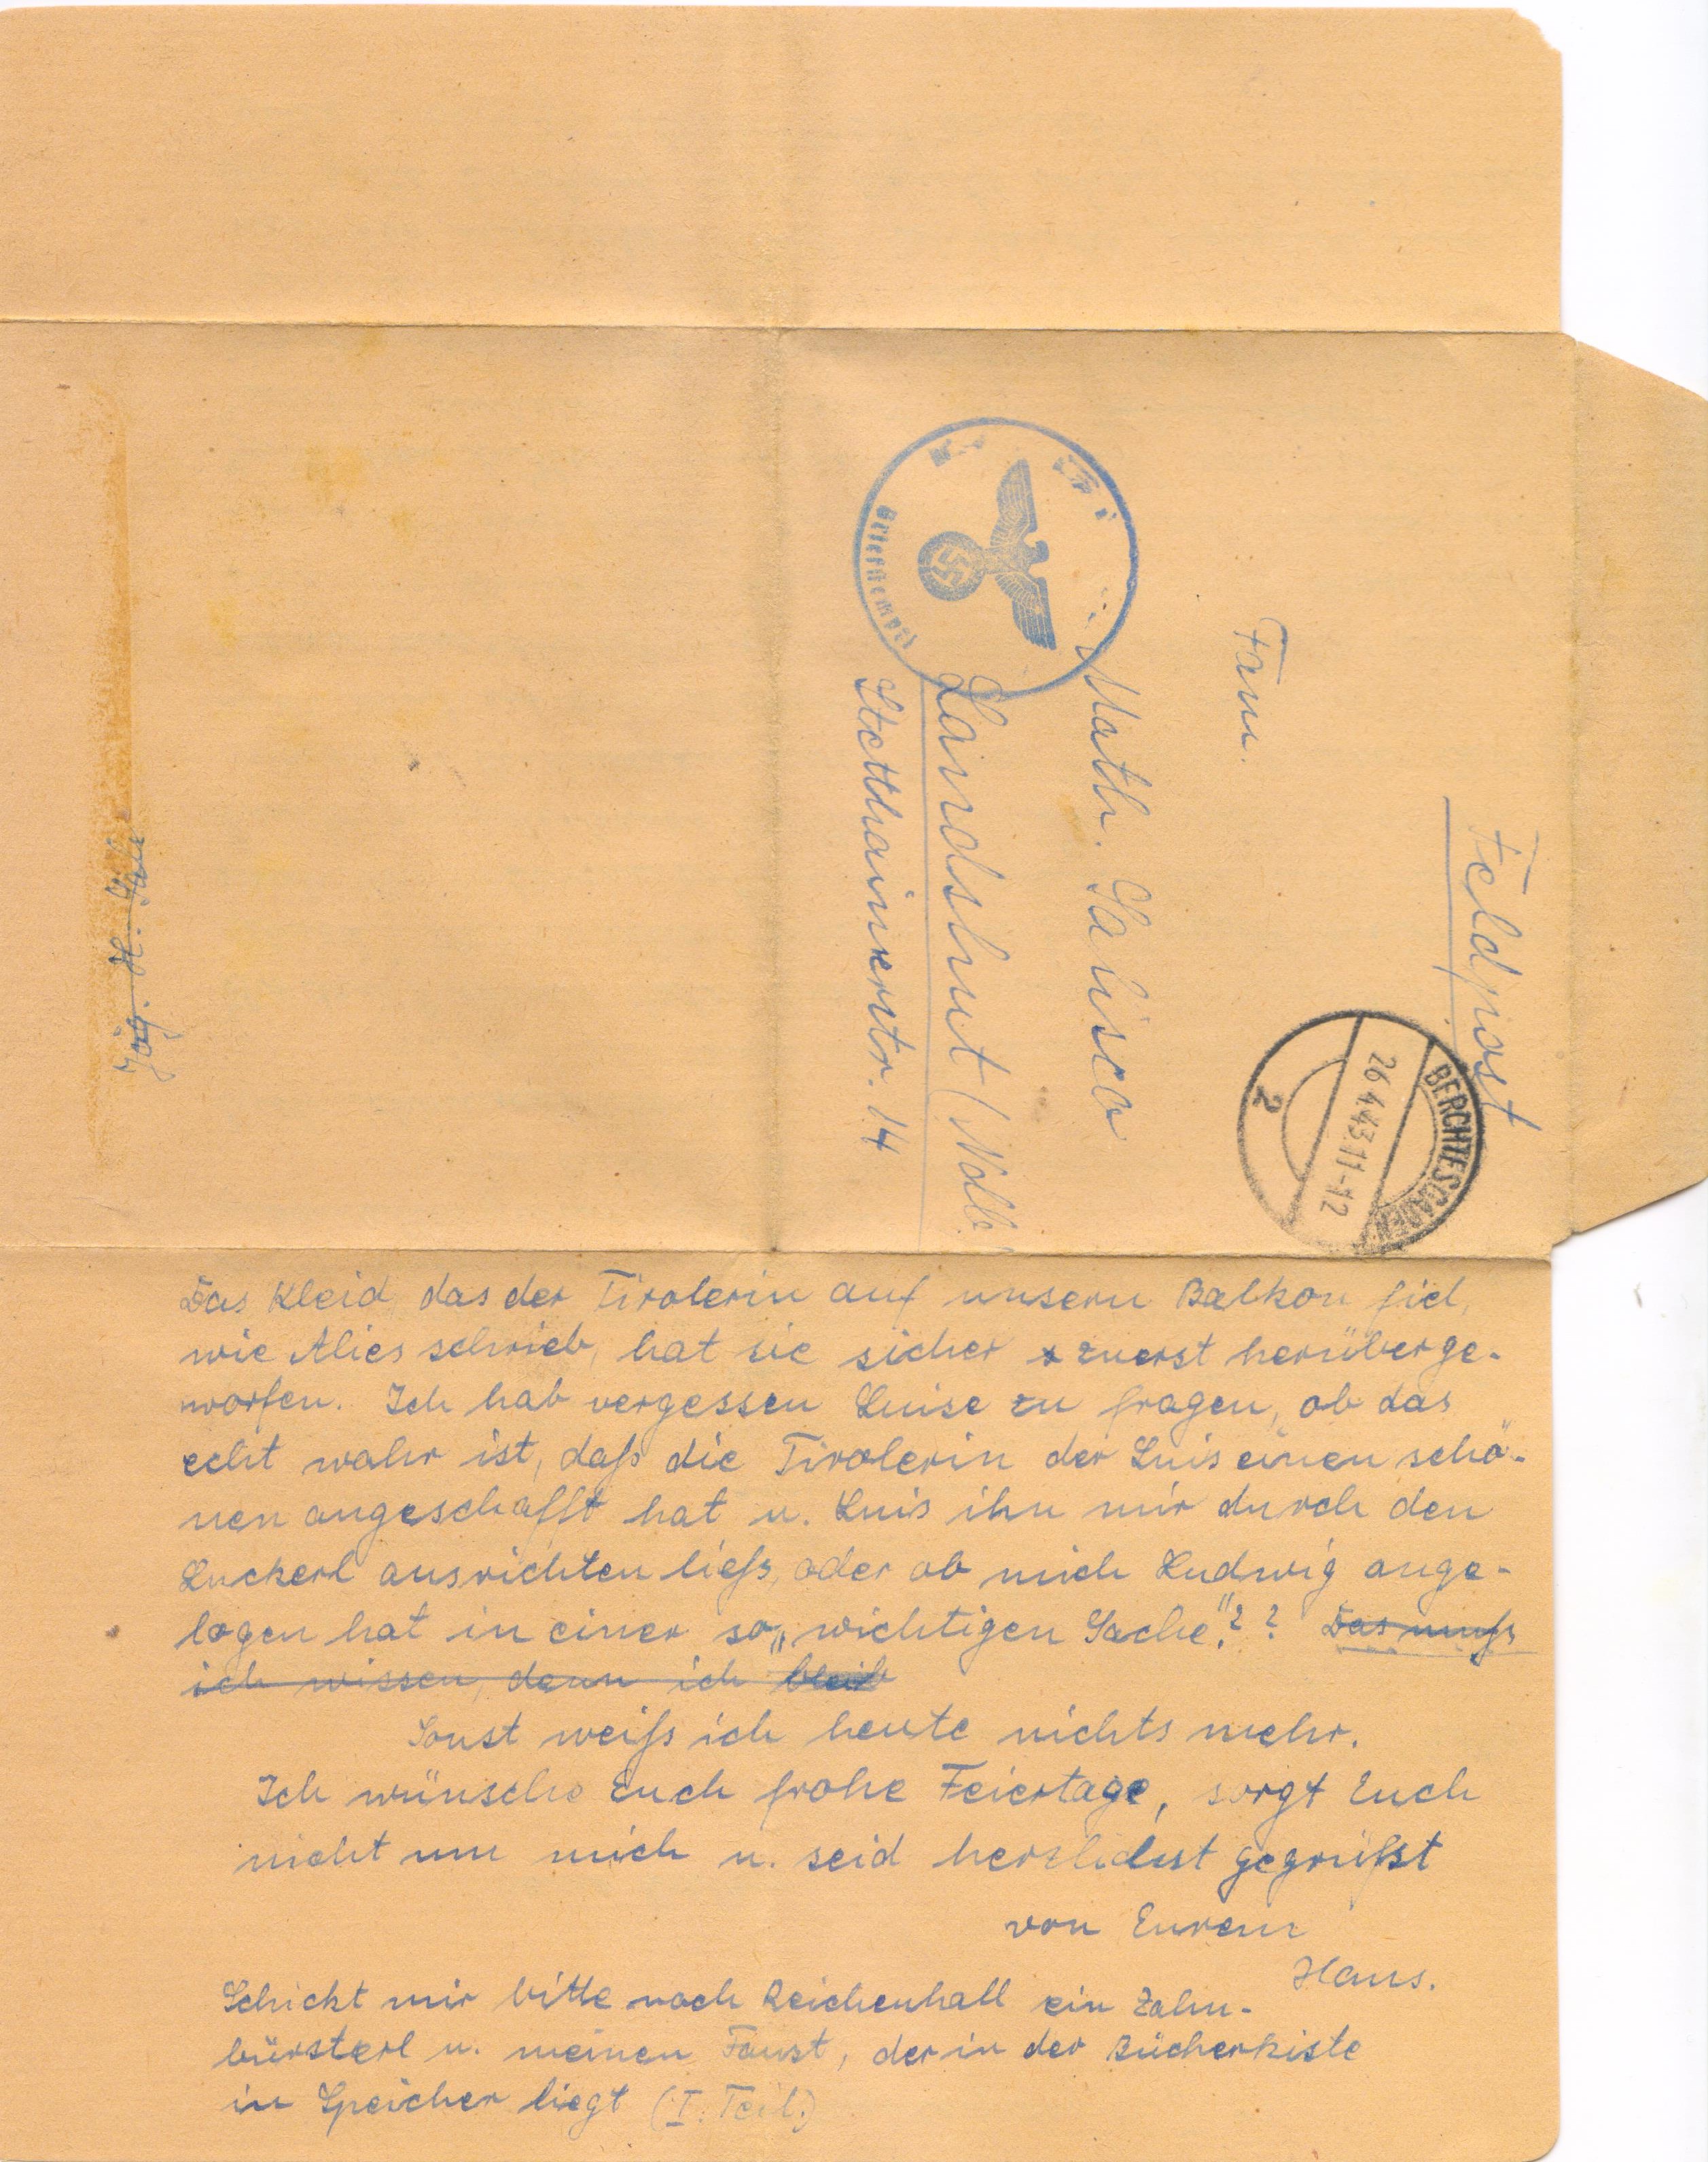 Feldpost
BERCHTESGADEN
26.4.43.11-12
2
Fam.
Math. Salisco
Landshut (Ndb.
Stetthaimerstr. 14
Briefstempel
Jäg. H. Sali
Das Kleid, das der Tirolerin auf unsern Balkon fiel,
wie Alies schrieb, hat sie sicher zuerst herüberge-
worfen. Ich hab vergessen Luise zu fragen, ob das
echt wahr ist, daß die Tirolerin der Luis einen schö-
nen angeschafft hat u. Luis ihn mir durch den
Luckerl ausrichten ließ, oder ob mich Ludwig ange-
logen hat in einer so „wichtigen Sache"?? Das muß
ich wissen, denn ich bleib
Sonst weiß ich heute nichts mehr.
Ich wünsche Euch frohe Feiertage, sorgt Euch
nicht um mich u. seid herzlichst gegrüßt
von Eurem
Hans.
Schickt mir bitte nach Reichenhall ein Zahn-
bürsterl u. meinen Faust, der in der Bücherkiste
in Speicher liegt (I. Teil.)